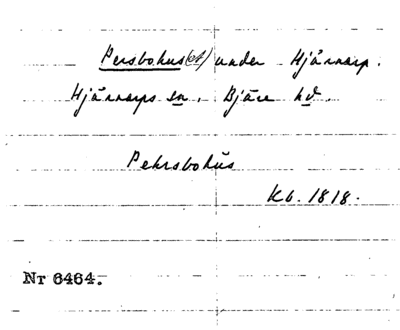 Persbohus(et) under Hjärnarp.
Hjärnarps sn. Bjäre hd.
Pehrsbohus
Kb. 1818.
Nr 6464.